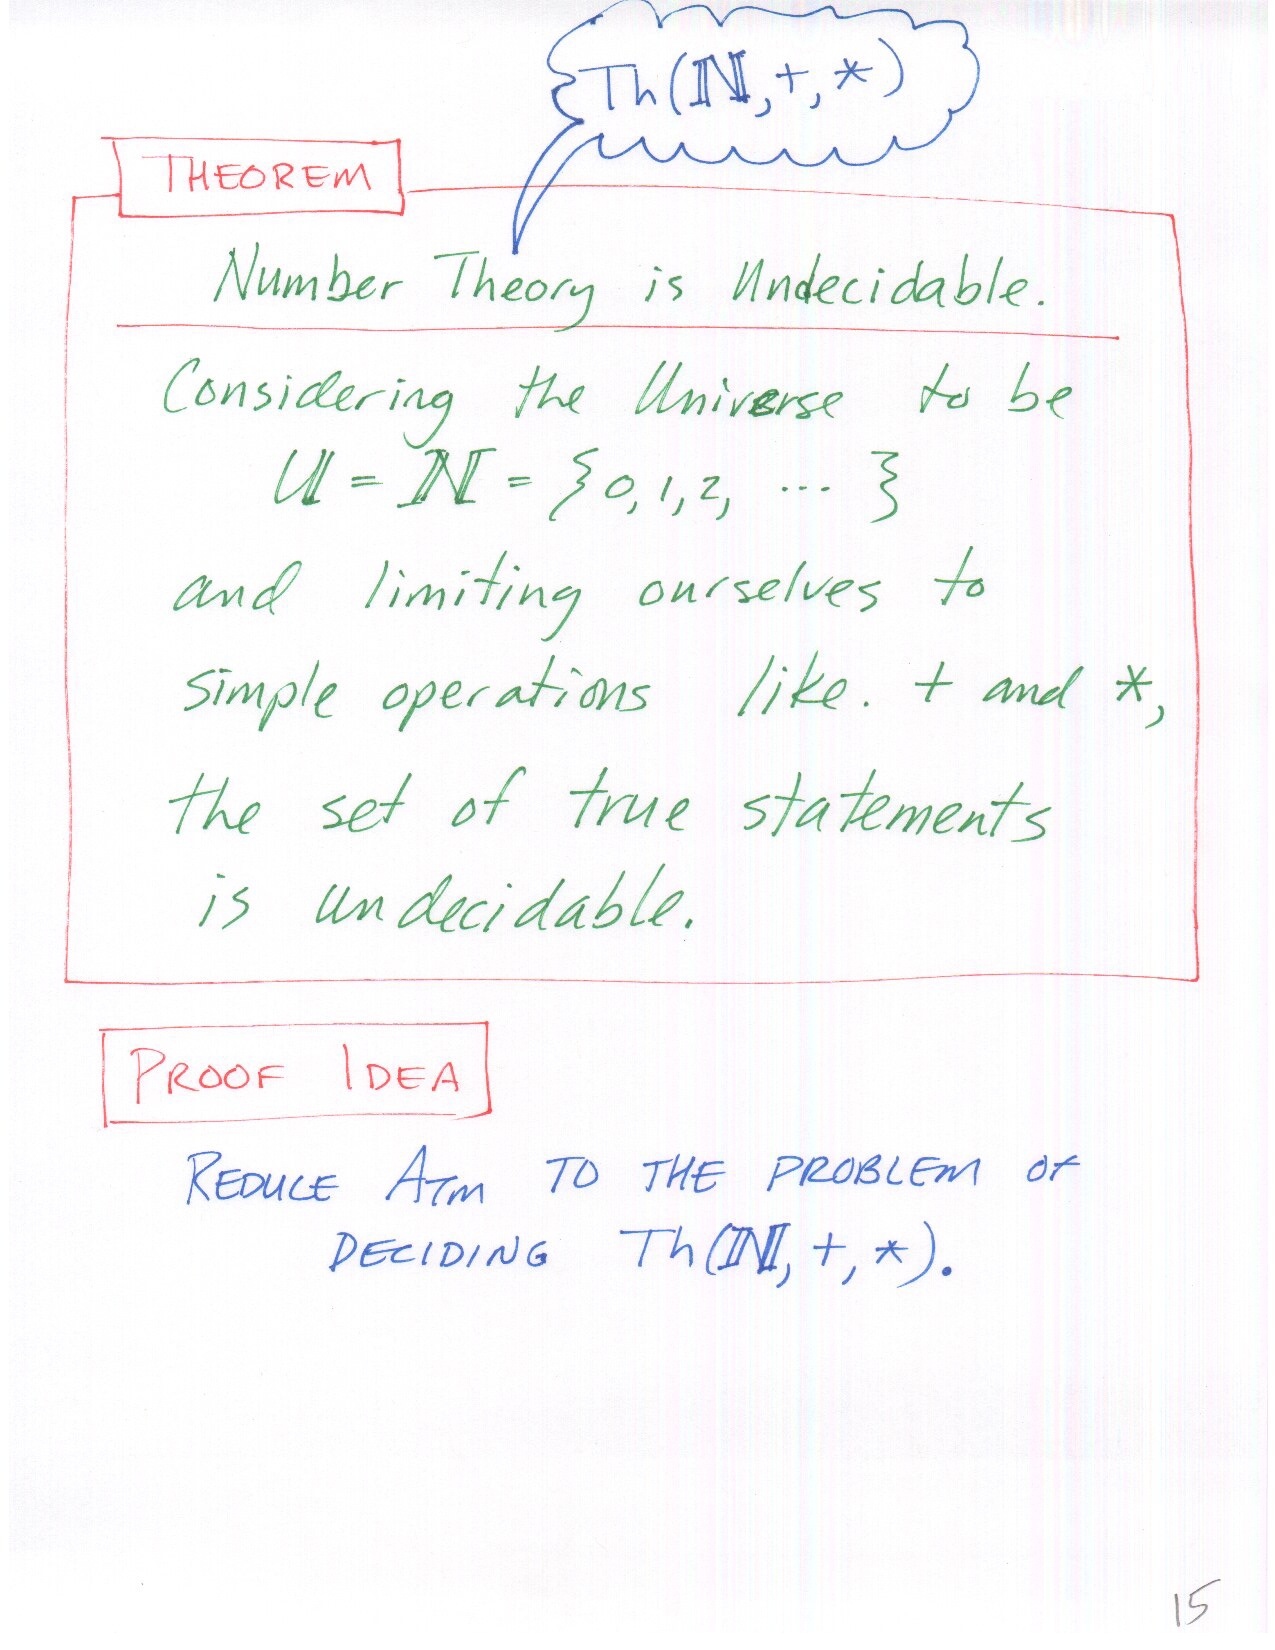 Th(ℕ, +, *)
THEOREM
Number Theory is Undecidable.
Considering the Universe to be
U = ℕ = {0, 1, 2, ... }
and limiting ourselves to
simple operations like. + and *,
the set of true statements
is undecidable.
PROOF IDEA
REDUCE ATM TO THE PROBLEM OF
DECIDING Th(ℕ, +, *).
15